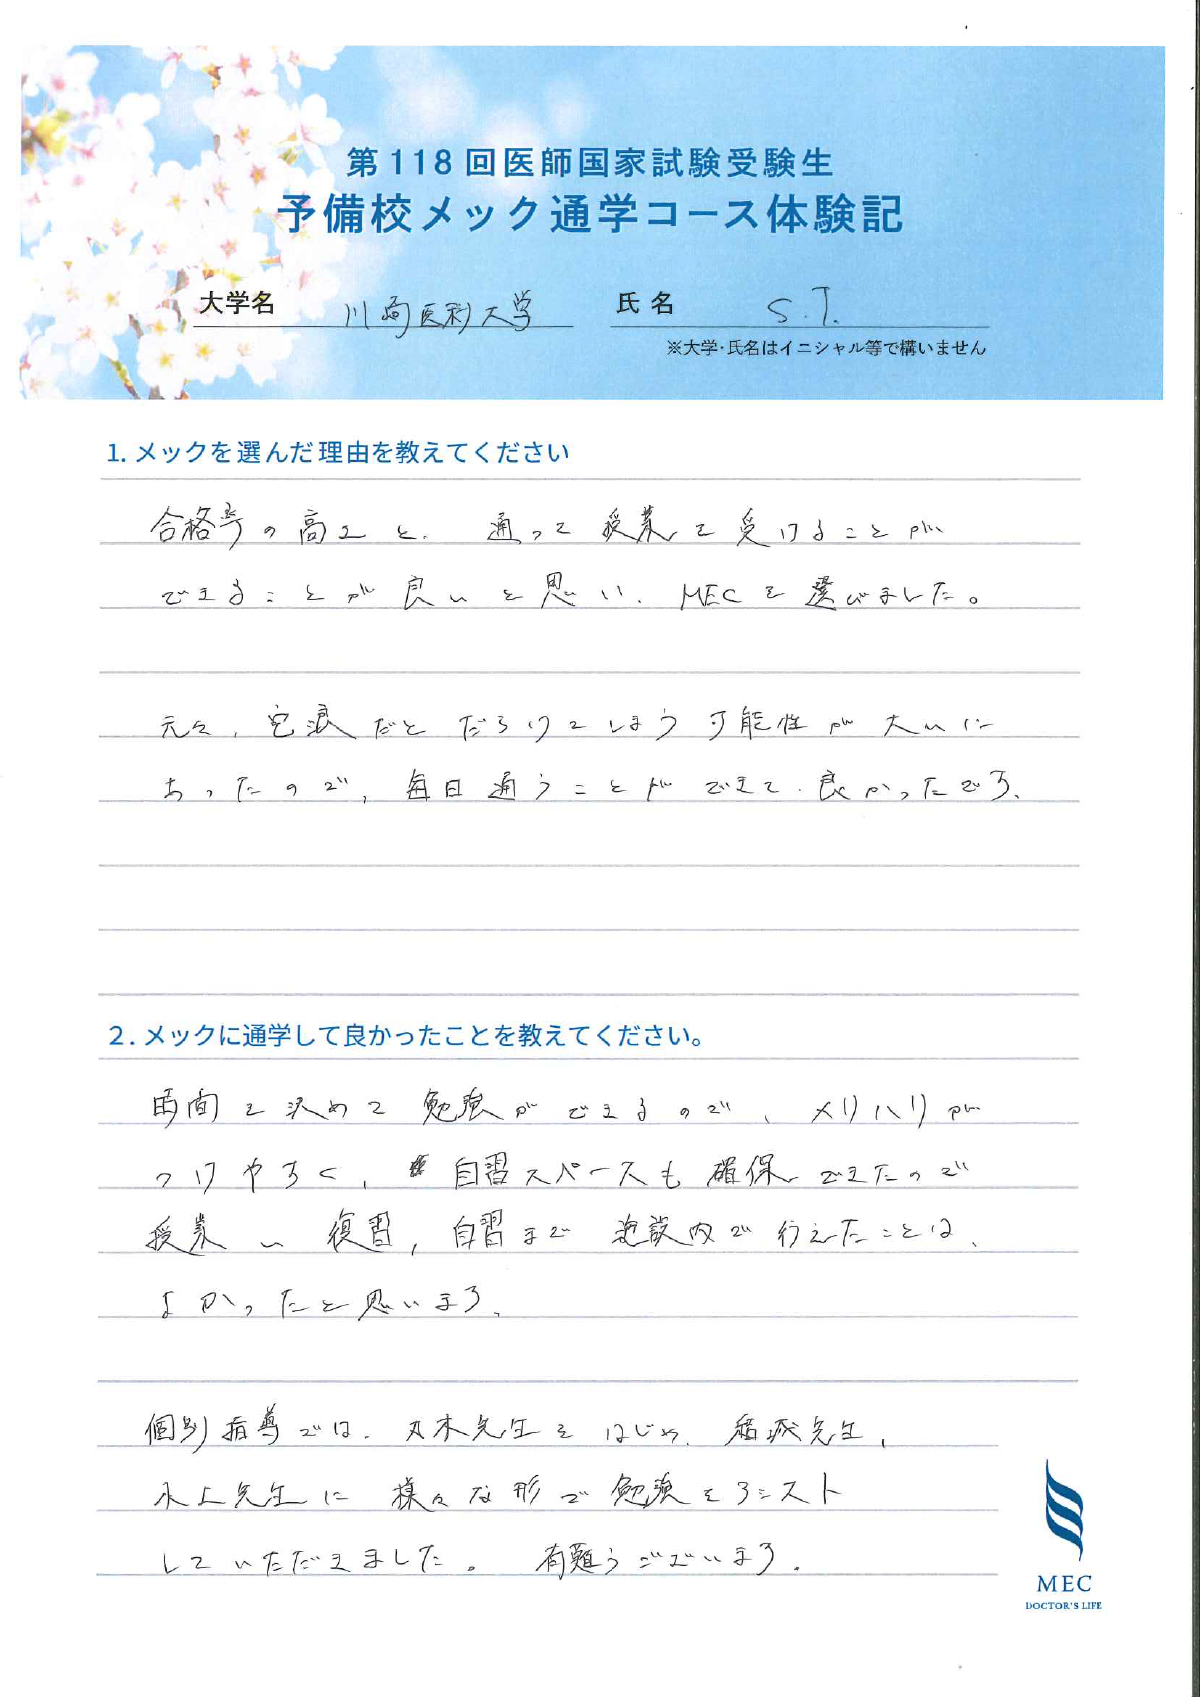 第118回医師国家試験受験生
予備校メック通学コース体験記
大学名 川崎医科大学 氏名 S.T.
※大学・氏名はイニシャル等で構いません
1. メックを選んだ理由を教えてください
合格率の高さと、通って授業を受けることが
できることが良いと思い、MECを選びました。
元々、宅浪だとだらけてしまう可能性が大いに
あったので、毎日通うことができて良かったです。
2. メックに通学して良かったことを教えてください。
時間を決めて勉強ができるので、メリハリが
つけやすく、自習スペースも確保できたので
授業〜復習、自習まで施設内で行えたことは、
よかったと思います。
個別指導では、乃木先生をはじめ、稲城先生、
水上先生に様々な形で勉強をアシスト
していただきました。有難うございます。
MEC
DOCTOR'S LIFE